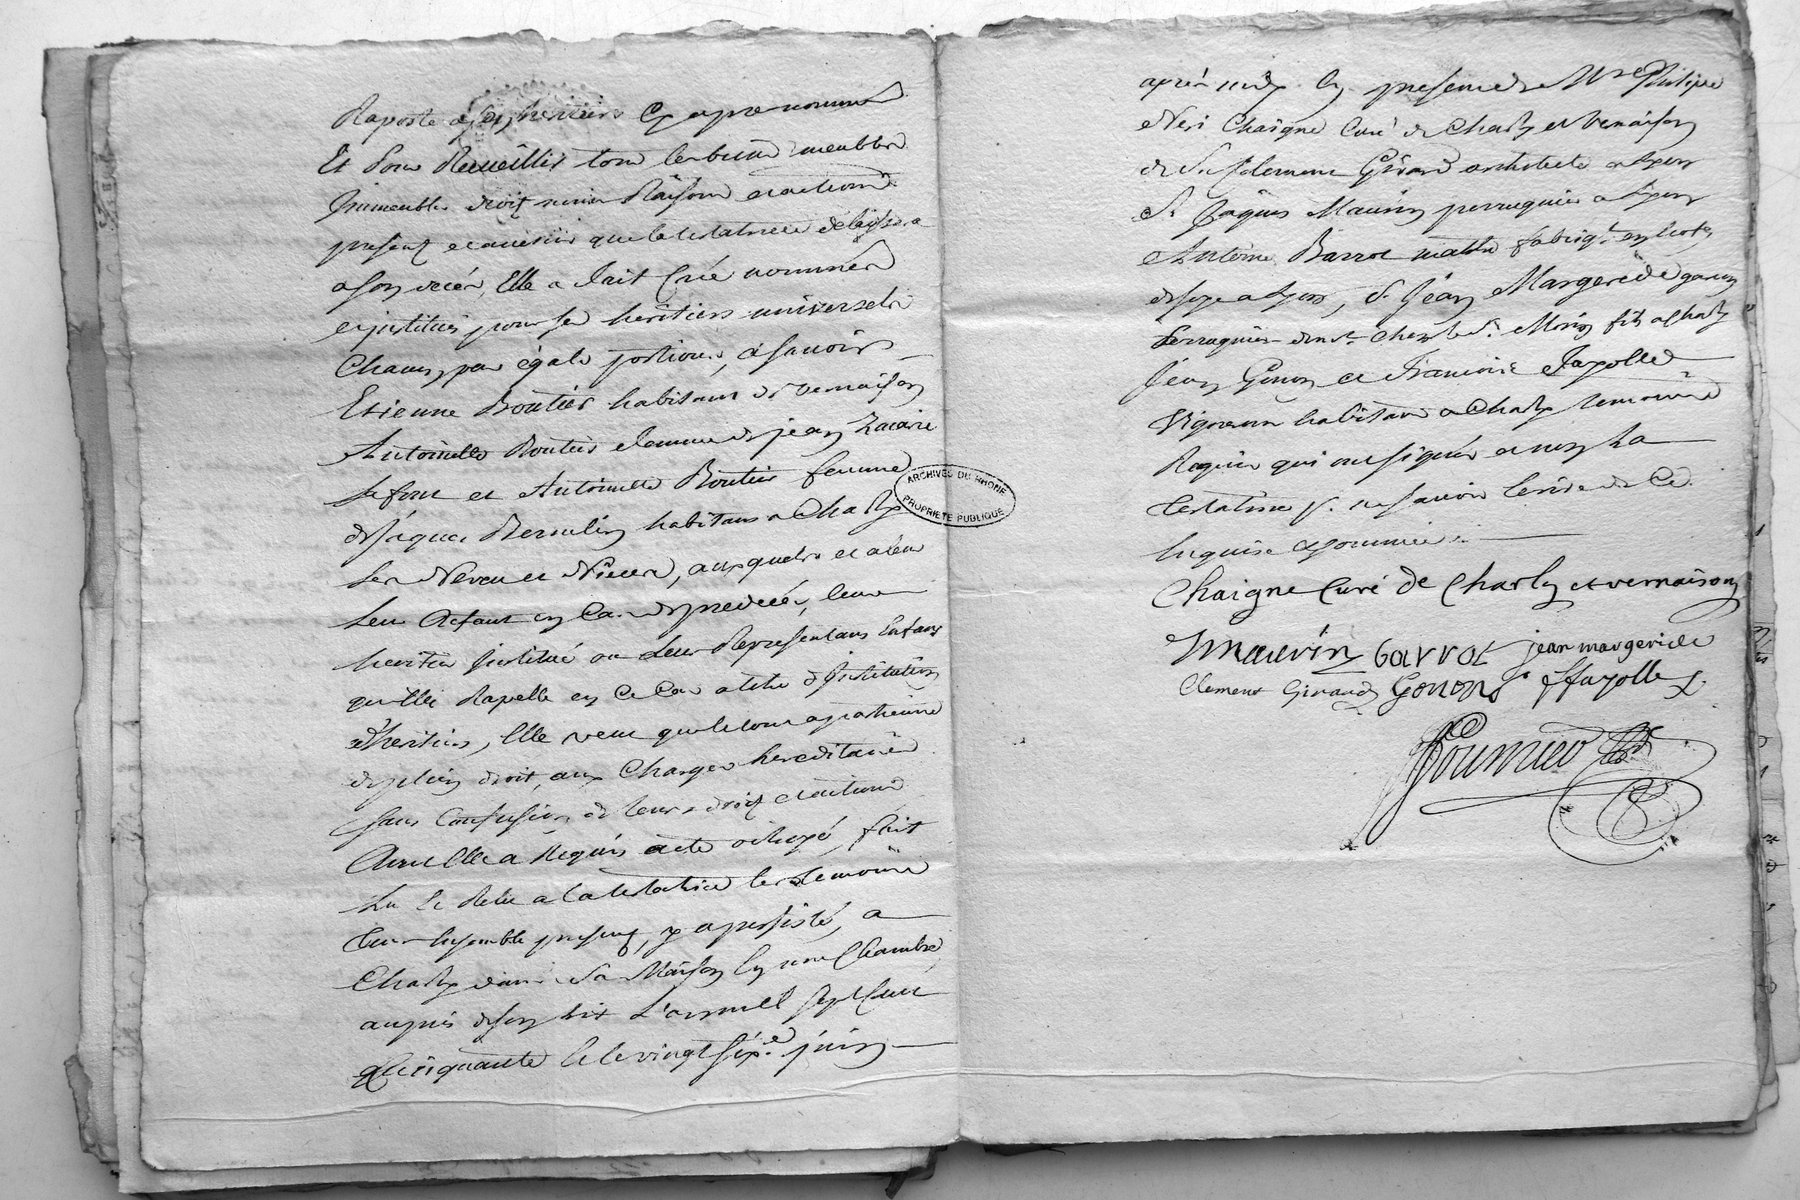 Raporte a ses heritiers cy apres nommés
Et pour Recueillir tous les biens meubles
Immeubles droits noms Raisons et actions
presents et avenir que la testatrice delaissera
a son deces, Elle a fait Créé nommés
et institués pour ses heritiers universels
Chacun par égale portions, a scavoir
Etienne Boutier habitant de vernaison
Antoinette Boutier femme de jean Zacarie
Lafont et Antoinette Boutier femme
de jaques habitans a Charly
ses Neveu et Nieces, auxquels et a leur
leur defaut en Cas de predecés, leur
heritier Institué ou leur Representans Enfans
quelle Rapelle en Ce Cas a titre d'Institution
d'heritiers, Elle veut que le tout apartienne
de plein droit, aux Charges hereditaires
sans Confusion de leurs droits et actions
dont Elle a Requis acte octroyé, fait
Lu et Relu a la testatrice les temoins
tous Ensemble presens, y a persisté, a
Charly dans Sa Maison En une Chambre
aupres de son lit L'an mil sept Cent
Cinquante le vingt six.e juin
apres midy En presence de M.re Philipe
Neri Chaigne Curé de Charly et Vernaison
de S.r Clement Girard architecte a Lyon
S.r Jaques Mauvin perruquier a Lyon
Antoine Barrot maitre fabriq.t en
de soye a Lyon, S.r Jean Margeride garçon
Perruquier chez le S.r fils a Charly
Jean Gonon et François Fayolle
Vignerons habitans a Charly temoins
Requis qui ont signés et non La
testatrice p. ne scavoir Ecrire de Ce
Enquise et sommée.
Chaigne Curé de Charly et vernaison
Mauvin barrot jean margeride
Clement Girard Gonon f fayolle
Fournier
ARCHIVES DU RHONE
PROPRIETE PUBLIQUE